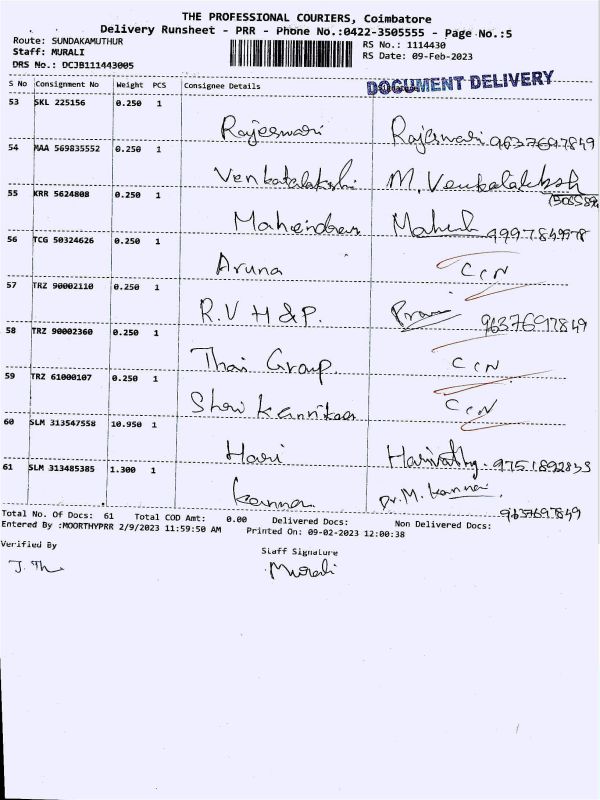 THE PROFESSIONAL COURIERS, Coimbatore
Delivery Runsheet - PRR - Phone No.:0422-3505555 - Page No.:5
Route: SUNDAKAMUTHUR
RS No.: 1114430
Staff: MURALI
RS Date: 09-Feb-2023
DRS No.: DCJB111443005
DOCUMENT DELIVERY
S No Consignment No Weight PCS Consignee Details
53 SKL 225156 0.250 1
Rajeswari Rajeswari 9637697849
54 MAA 569835552 0.250 1
Venkatalakshi M. Venkalakksh
55 KRR 5624808 0.250 1
Mahendran Mahendr
56 TCG 50324626 0.250 1
Aruna CCN
57 TRZ 90002110 0.250 1
R.V H & P. 9637697849
58 TRZ 90002360 0.250 1
Thai Group. CCN
59 TRZ 61000107 0.250 1
CCN
60 SLM 313547558 10.950 1
Hari
61 SLM 313485385 1.300 1
Kannan Dr.M. Kannan
9637697849
Total No. Of Docs: 61 Total COD Amt: 0.00 Delivered Docs: Non Delivered Docs:
Entered By :MOORTHYPRR 2/9/2023 11:59:50 AM Printed On: 09-02-2023 12:00:38
Verified By Staff Signature
Murali